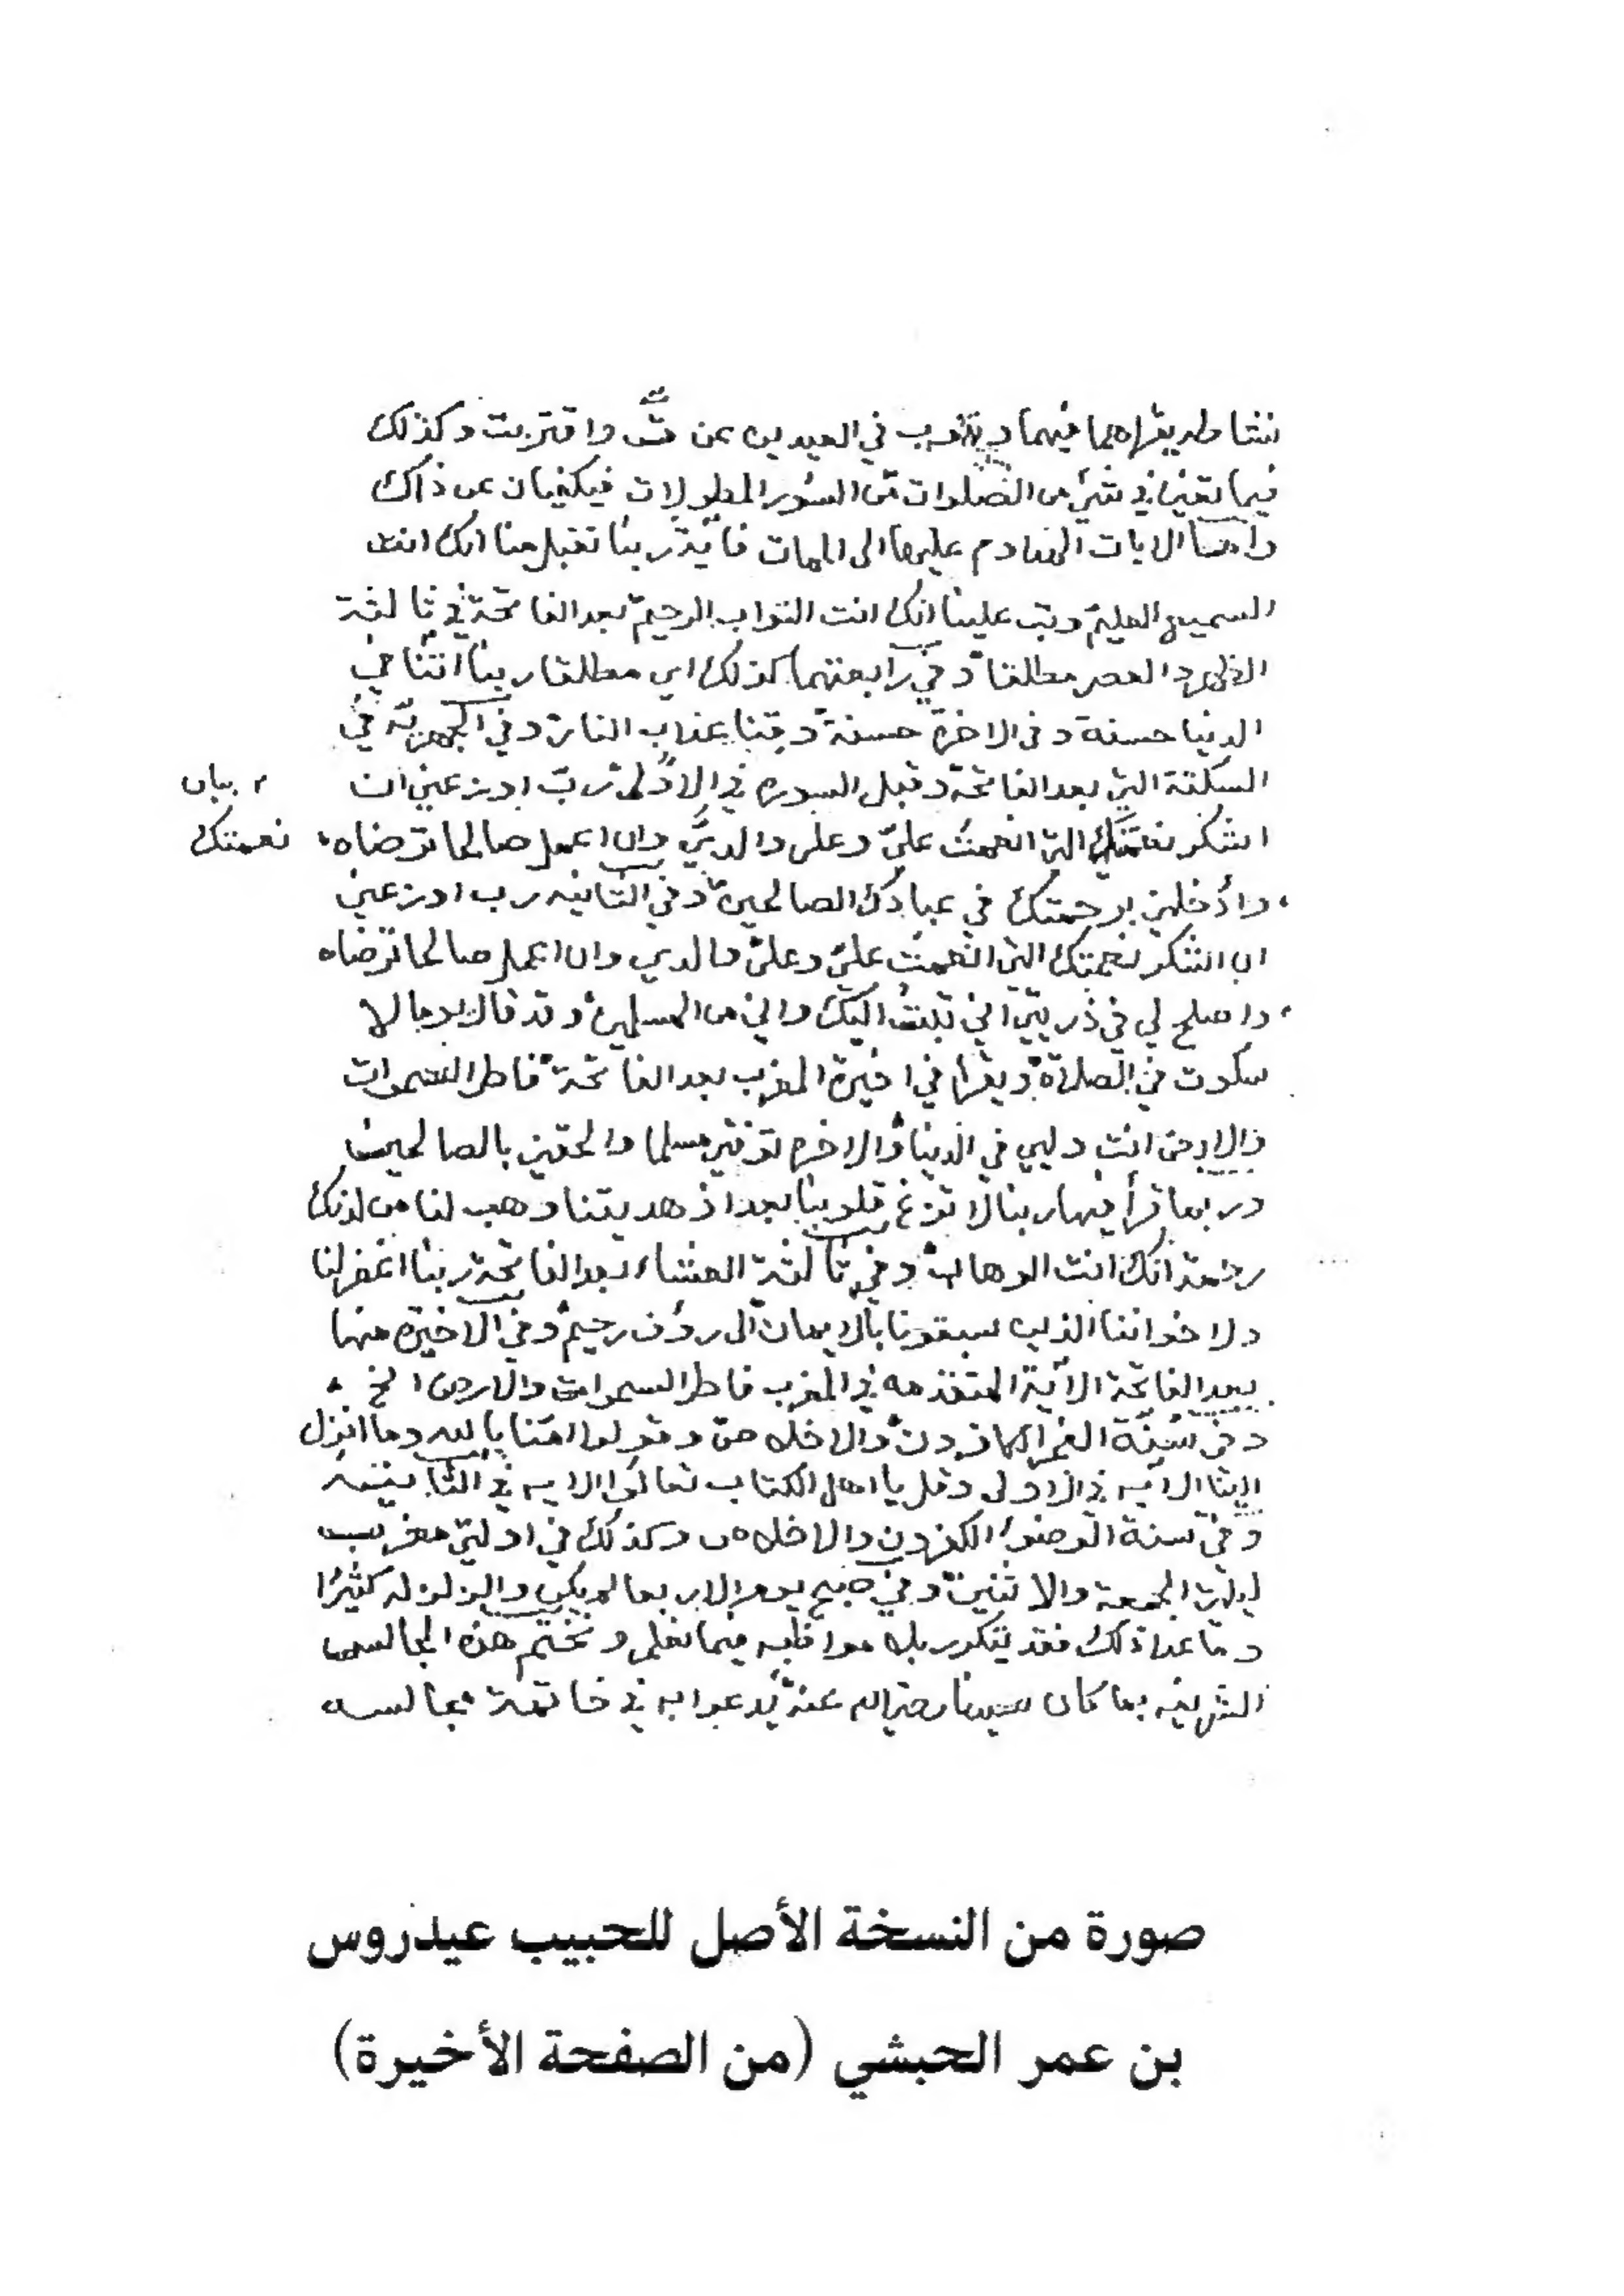 نشا طه يقراهما فيهما وينوب في العيدين عن ق واقتربت وكذلك
فيما تعين في شيء من الصلوات من السور المطولات فيكفيان عن ذاك
وامـا الايات المداوم عليها الى الممات فآية ربنا تقبل منا انك انت
السميع العليم وتب علينا انك انت التواب الرحيم بعد الفاتحة في ثالثة
الظهر والعصر مطلقا وفي رابعتهما كذلك اي مطلقا ربنا اتنا في
الدنيا حسنة وفي الاخرة حسنة وقنا عذاب النار وفي الجهرية في
السكتة التي بعد الفاتحة وقبل السوره في الاولى رب اوزعني ان
اشكر نعمتك التي انعمت علي وعلى والدي وان اعمل صالحا ترضاه
بيان
نعمتك
وادخلني برحمتك في عبادك الصالحين وفي الثانيه رب اوزعني
ان اشكر نعمتك التي انعمت علي وعلى والدي وان اعمل صالحا ترضاه
واصلح لي في ذريتي اني تبت اليك واني من المسلمين وقد قالوا لا
سكوت في الصلاة ويقرا في اخيرة المغرب بعد الفاتحة فاطر السموات
والارض انت وليي في الدنيا والاخره توفني مسلما والحقني بالصالحين
وربما قرأ فيها ربنا لا تزغ قلوبنا بعد اذ هديتنا وهب لنا من لدنك
رحمة انك انت الوهاب وفي ثالثة العشاء بعد الفاتحة ربنا اغفر لنا
ولاخواننا الذين سبقونا بالايمان الى رؤف رحيم وفي الاخيرة منها
بعد الفاتحة الآية المتقدمه في المغرب فاطر السموات والارض الخ
وفي سنة الفجر الكافرون والاخلاص وقولوا امنا بالله وما انزل
الينا الآيه في الاولى وقل يا اهل الكتاب تعالوا الايه في الثانيه
وفي سنة الوضوء الكفرون والاخلاص وكذلك في اولتي مغرب
ليلة الجمعة والاثنين وفي صبح يوم الاربعا لم يكن والزلزله كثيرا
وما عدا ذلك فقد يتكرر بلا مواظبه فيما نعلم ونختم هذه المجالس
الشريفه بما كان سيدنا رضي الله عنه يدعوا به في خاتمة مجالسه
صورة من النسخة الأصل للحبيب عيدروس
بن عمر الحبشي (من الصفحة الأخيرة)